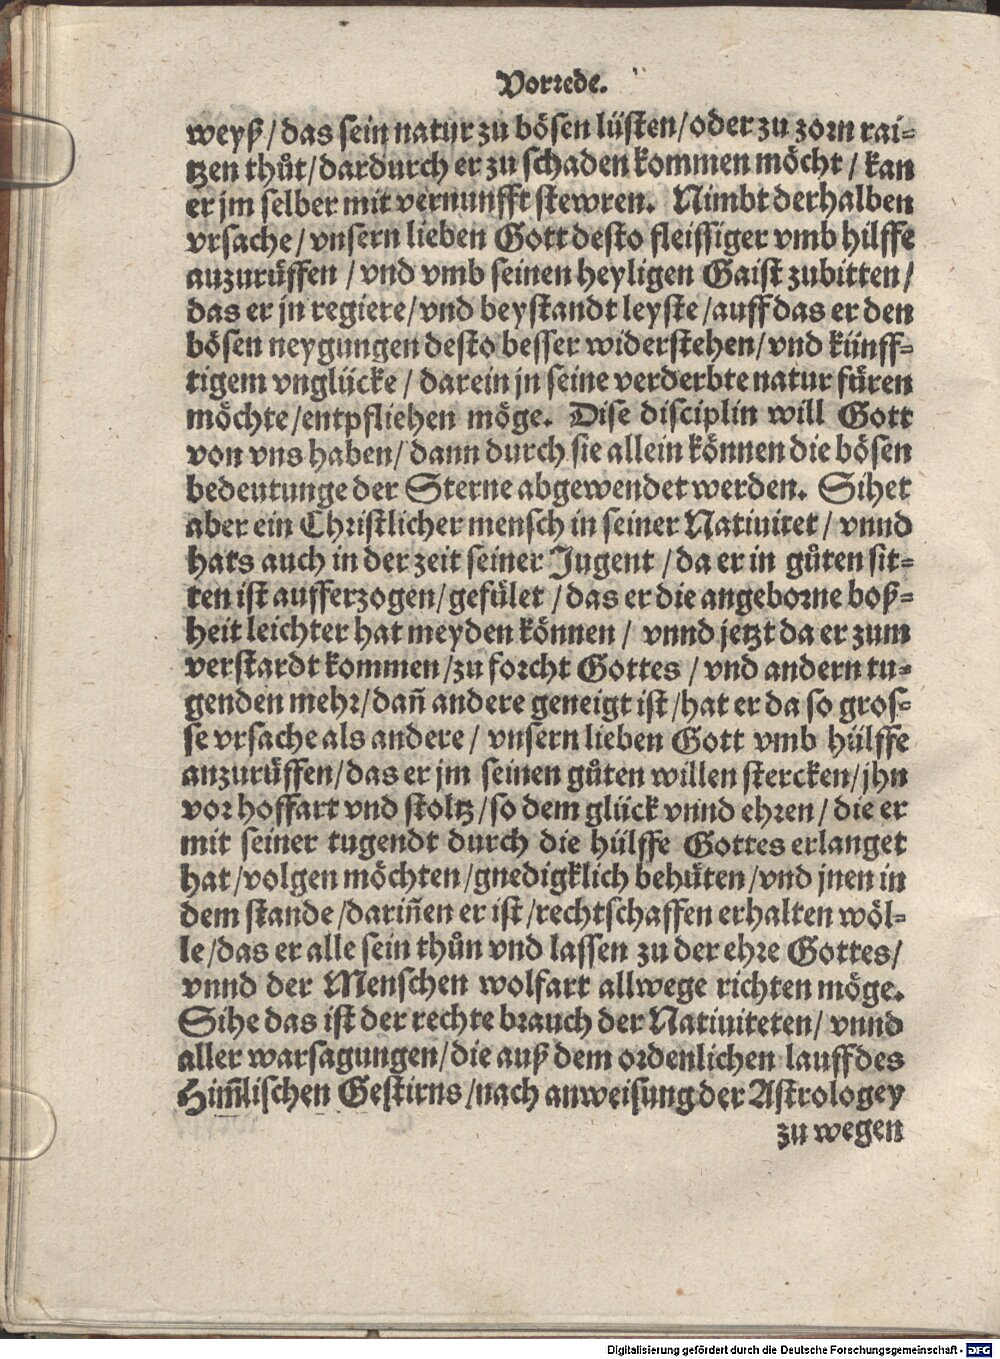 Vorrede.
weyß / das sein natur zu bösen lüsten / oder zu zorn rai⸗
tzen thůt / dardurch er zu schaden kommen möcht / kan
er jm selber mit vernunfft stewren. Nimbt derhalben
vrsache / vnsern lieben Gott desto fleissiger vmb hilffe
anzurüffen / vnd vmb seinen heyligen Gaist zubitten /
das er jn regiere / vnd beystandt leyste / auff das er den
bösen neygungen desto besser widerstehen / vnd künff⸗
tigem vnglücke / darein jn seine verderbte natur füren
möchte / entpfliehen möge. Dise disciplin will Gott
von vns haben / dann durch sie allein können die bösen
bedeutunge der Sterne abgewendet werden. Sihet
aber ein Christlicher mensch in seiner Natiuitet / vnnd
hats auch in der zeit seiner Jugent / da er in gůten sit⸗
ten ist aufferzogen / gefület / das er die angeborne boß⸗
heit leichter hat meyden können / vnnd jetzt da er zum
verstandt kommen / zu forcht Gottes / vnd andern tu⸗
genden mehr / dañ andere geneigt ist / hat er da so gros⸗
se vrsache als andere / vnsern lieben Gott vmb hülffe
anzurüffen / das er jm seinen gůten willen stercken / jhn
vor hoffart vnd stoltz / so dem glück vnnd ehren / die er
mit seiner tugendt durch die hülffe Gottes erlanget
hat / volgen möchten / gnedigklich behüten / vnd jnen in
dem stande / dariñen er ist / rechtschaffen erhalten wöl⸗
le / das er alle sein thůn vnd lassen zu der ehre Gottes /
vnnd der Menschen wolfart allwege richten möge.
Sihe das ist der rechte brauch der Natiuiteten / vnnd
aller warsagungen / die auß dem ordenlichen lauff des
Him̃lischen Gestirns / nach anweisung der Astrologey
zu wegen
Digitalisierung gefördert durch die Deutsche Forschungsgemeinschaft - DFG